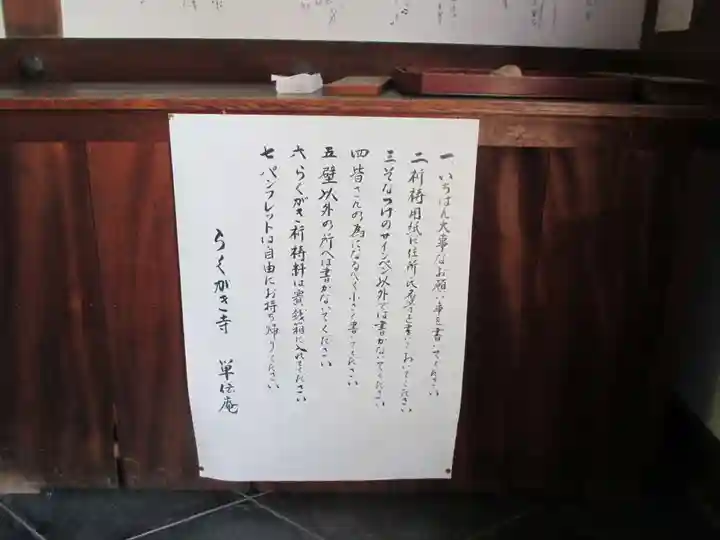 一 いちばん大事なお願い事を書いてください
二 祈祷用紙に住所氏名等を書いておいてください
三 そなつけのサインペン以外では書かないでください
四 皆さんの為になるべく小さく書いてください
五 壁以外の所へは書かないでください
六 らくがき祈祷料は賽銭箱に入れてください
七 パンフレットは自由にお持ち帰りください
らくがき寺 単伝庵